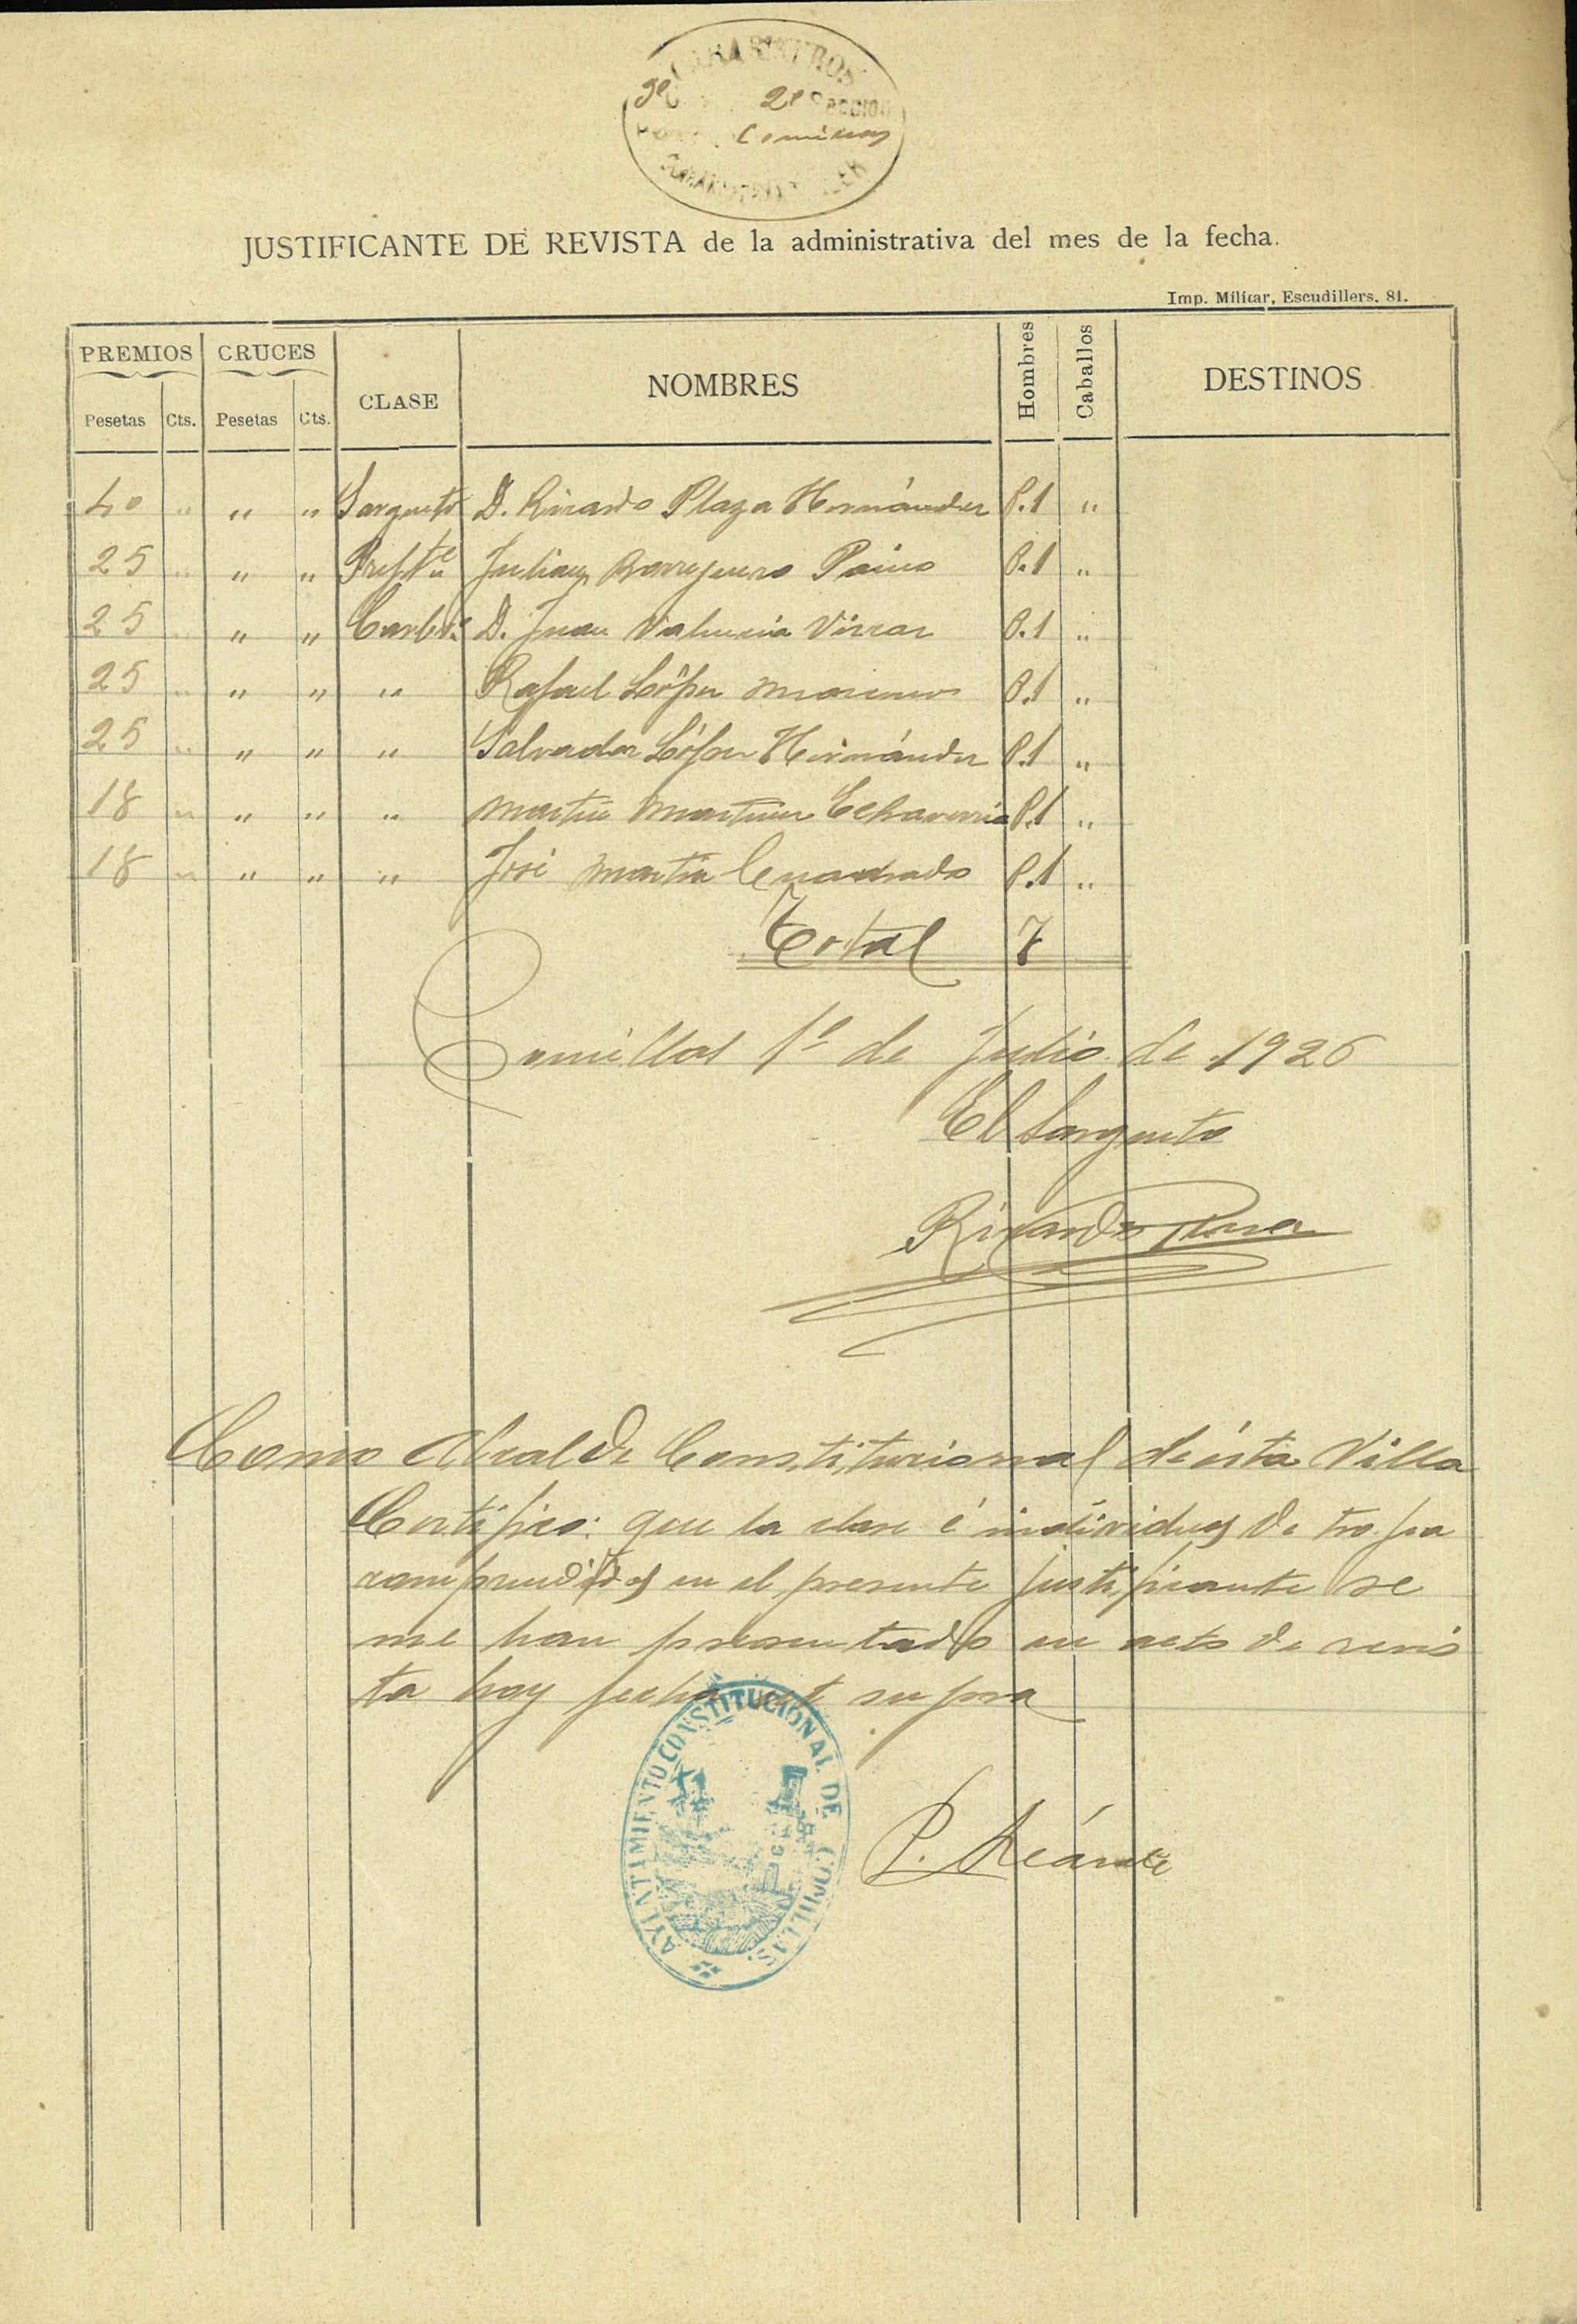 CARABINEROS
2ª Sección
Comillas
JUSTIFICANTE DE REVISTA de la administrativa del mes de la fecha.
Imp. Militar, Escudillers, 81.
PREMIOS CRUCES CLASE NOMBRES Hombres Caballos DESTINOS
Pesetas Cts. Pesetas Cts.
40 " " " Sargento D. Ricardo Plaza Hernández P.1 "
25 " " " Julian Borreguero P.1 "
25 " " " D. Juan Valencia P.1 "
25 " " " " Rafael López Moreno P.1 "
25 " " " " Salvador López Hernández P.1 "
18 " " " " Martín Martínez Echavarría P.1 "
18 " " " " José Martín Cuadrado P.1 "
Total 7
Comillas 1º de Julio de 1926
El Sargento
Ricardo Plaza
Como Alcalde Constitucional de ésta Villa
Certifico: que la clase é individuos de tropa
comprendidos en el presente justificante se
me han presentado en acto de revis
ta hoy fecha ut supra
AYUNTAMIENTO CONSTITUCIONAL DE COMILLAS
P.